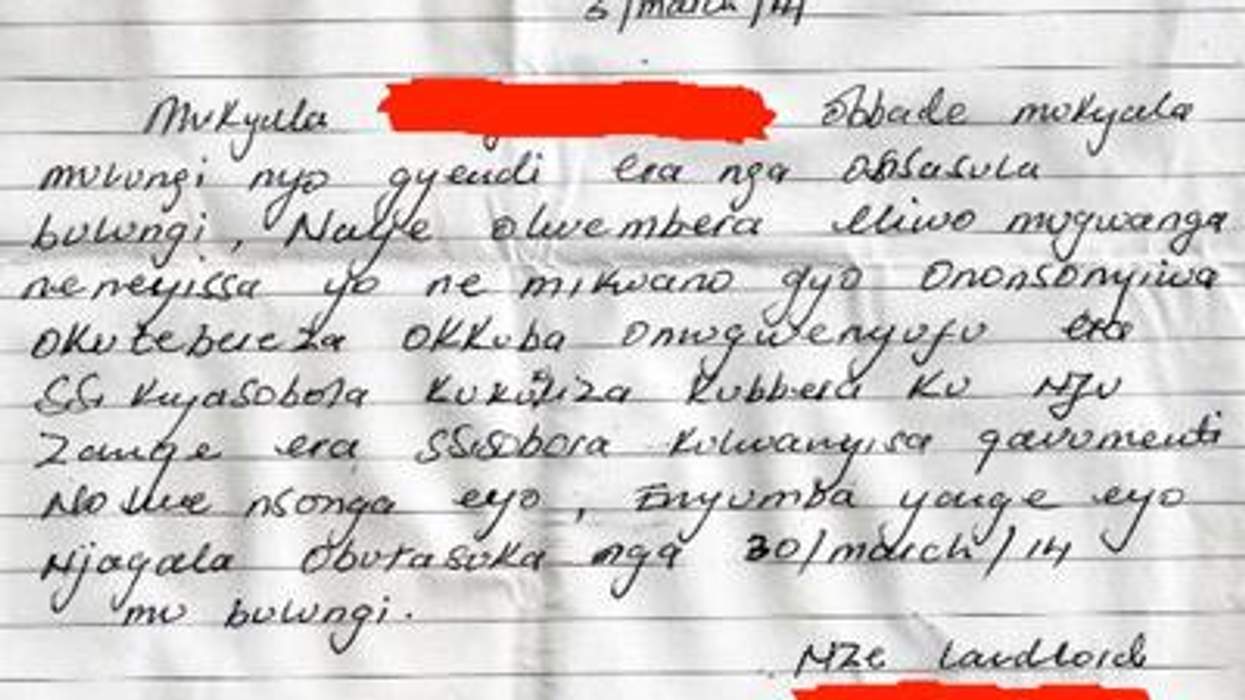 6/march/14
Mukyala obbade mukyala
mulungi nyo gyendi era nga obsasula
bulungi, Naye olwembera eliwo mugwanga
neneyissa yo ne mikwano gyo Ononsonyiwa
okutebereza okkuba omugwenyufu era
SSi kujasobola kukuliza kubbera ku NJu
Zange era SSisobora kulwanyisa gavumenti
No lwe nsonga eyo, Enyumba yange eyo
Njagala Obutasuka nga 30/march/14
mu bulungi.
NZe landlord